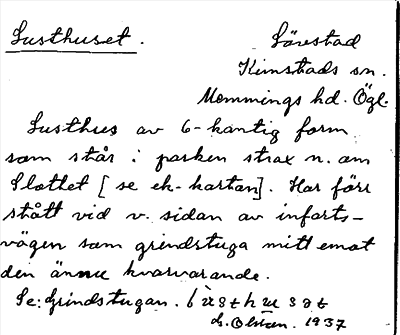 Lusthuset. Lövestad
Kimstads sn.
Memmings hd. Ögl.
Lusthus av 6-kantig form
som står i parken strax n. om
Slottet [se ek-kartan]. Har förr
stått vid v. sidan av infarts-
vägen som grindstuga mitt emot
den ännu kvarvarande.
Se: Grindstugan.
1937